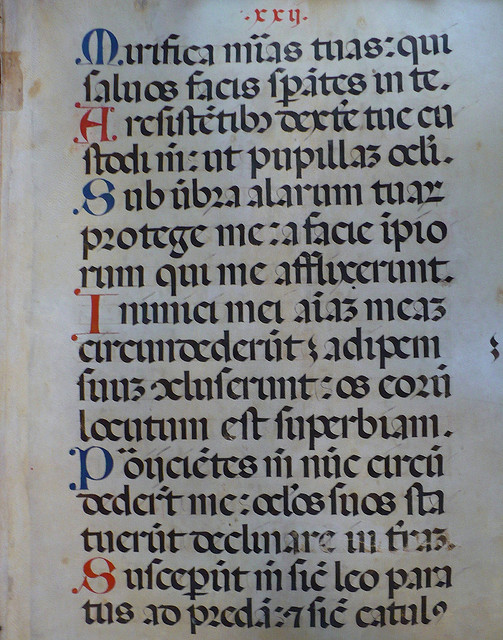 .xxij.
Mirifica mīas tuas: qui
saluos facis sp̄ātes in te.
A resistētibꝫ dexte tue cu
stodi m̄: ut pupillaꝫ ocli.
Sub ūbra alarum tuaꝝ
protege me: a facie īpio
rum qui me afflixerunt.
Inimici mei aīaꝫ meaꝫ
circundederūt ꝫ adipem
suuꝫ ↄcluserunt: os corū
locutum est superbiam.
Proijciētes m̄ nūc circū
dederūt me: oclōs suos sta
tuerūt declinare in trāꝫ.
Susceperūt m̄ sic̄ leo para
tus ad predā: ⁊ sic̄ catulꝰ